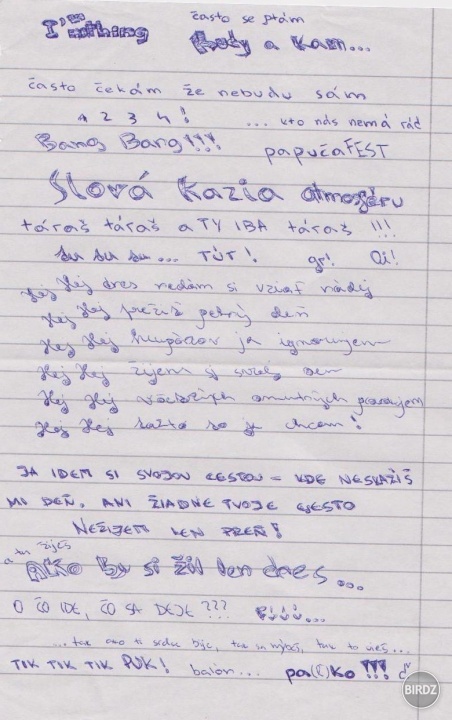 I'm nothing
často se ptám
Kudy a kam...
často čekám že nebudu sám
1 2 3 4!
... kto nás nemá rád
Bang Bang!!!
papučaFEST
Slová kazia atmosféru
táraš táraš a TY IBA táraš !!!
... TÚT! gr! Oi!
Hej Hej dnes nedám si vziať nádej
Hej Hej prežiť pekný deň
Hej Hej hlupákov ja ignorujem
Hej Hej žijem si svoj sen
Hej Hej všetkých smutných
Hej Hej čo je chcem!
JA IDEM SI SVOJOU CESTOU – KDE NESKAZÍŠ
MI DEŇ. ANI ŽIADNE TVOJE GESTO
NEŽIJEM LEN PREŇ!
a tu žiješ
Ako by si žil len dnes...
O ČO IDE, ČO SA DEJE???
...tak ako ti srdce bije, tak to vieš...
TIK TIK TIK PUK!
balón...
pa(!)ko !!!
BIRDZ